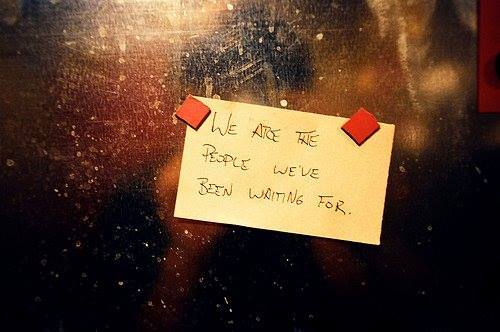 WE ARE THE
PEOPLE WE'VE
BEEN WAITING FOR.